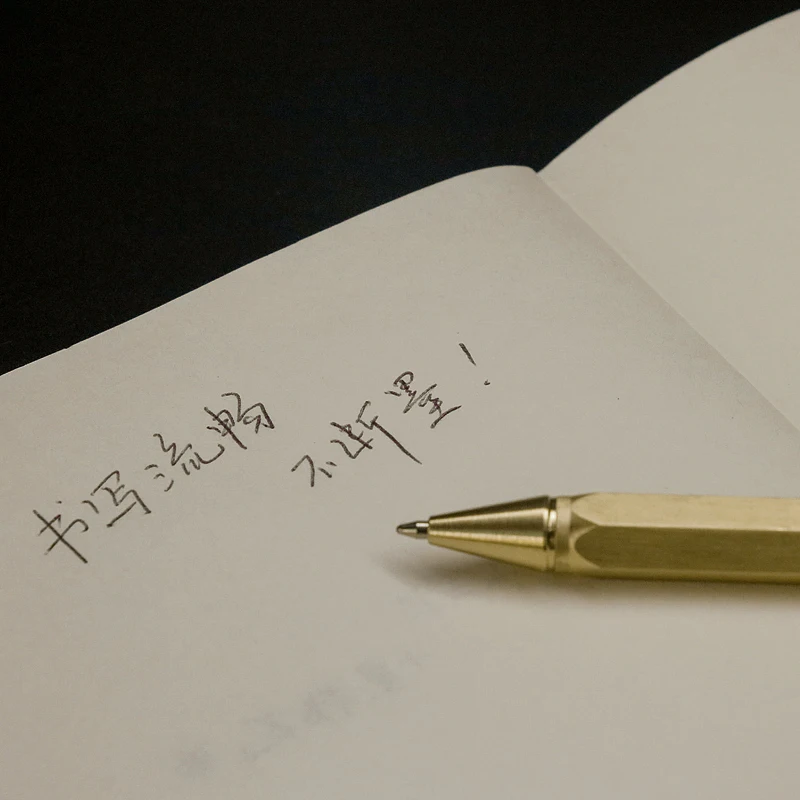 书写流畅 不断墨!